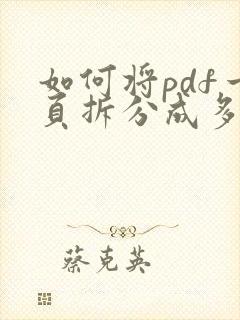 如何将pdf一
页拆分成多
蔡克英